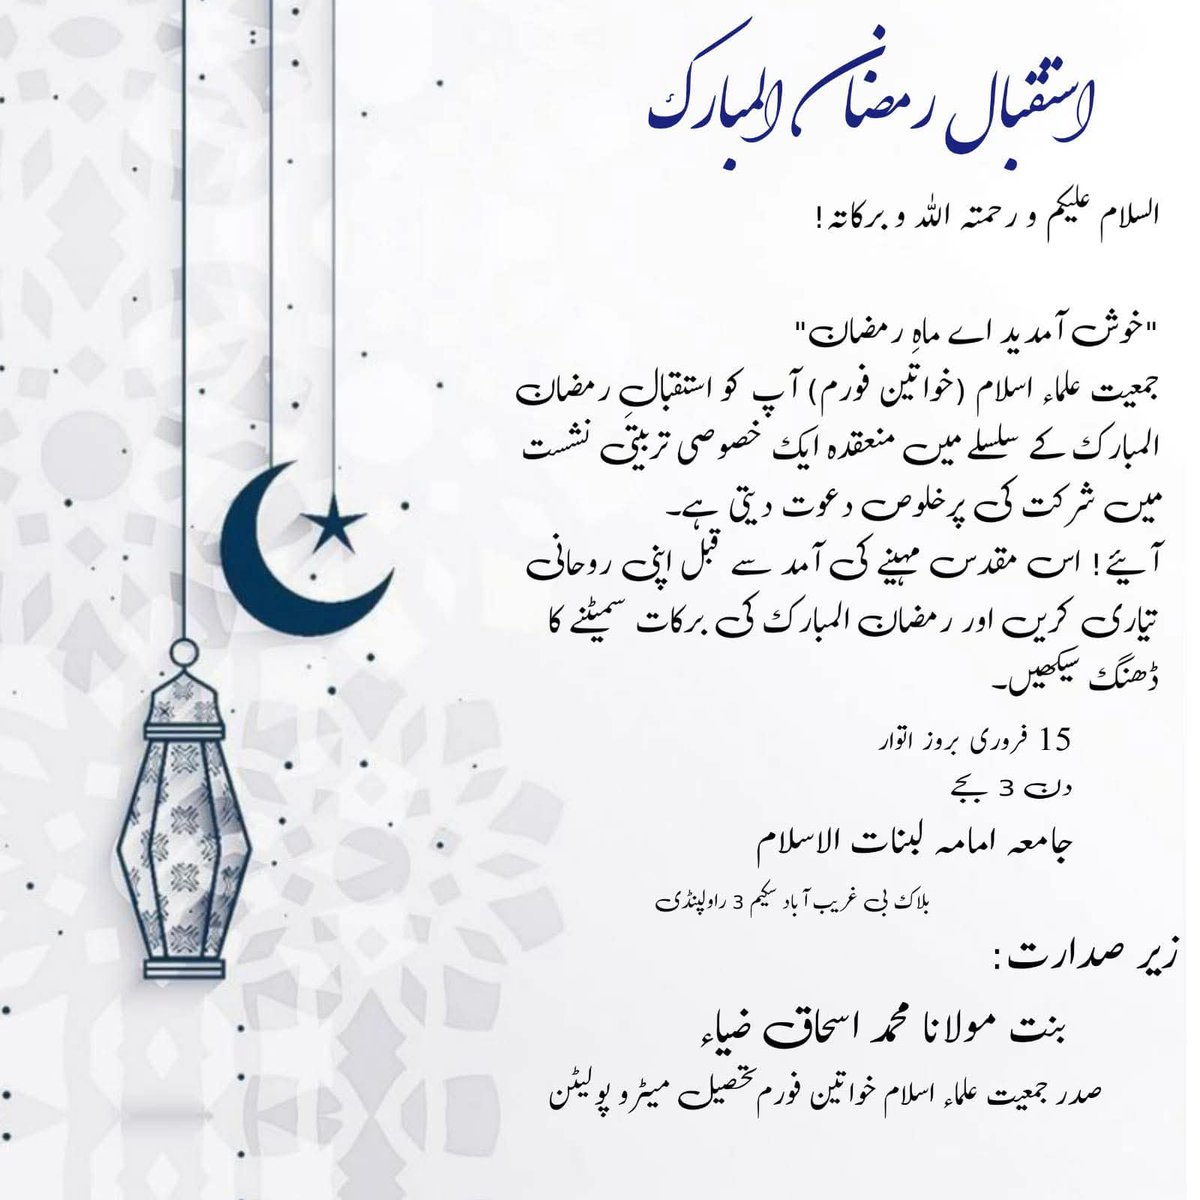 استقبال رمضان المبارک
السلام علیکم و رحمتہ اللہ و برکاتہ!
"خوش آمدید اے ماہِ رمضان"
جمعیت علماء اسلام (خواتین فورم) آپ کو استقبالِ رمضان
المبارک کے سلسلے میں منعقدہ ایک خصوصی تربیتی نشست
میں شرکت کی پرخلوص دعوت دیتی ہے۔
آیئے! اس مقدس مہینے کی آمد سے قبل اپنی روحانی
تیاری کریں اور رمضان المبارک کی برکات سمیٹنے کا
ڈھنگ سیکھیں۔
15 فروری بروز اتوار
دن 3 بجے
جامعہ امامہ لبنات الاسلام
بلاک بی غریب آباد سکیم 3 راولپنڈی
زیر صدارت:
بنت مولانا محمد اسحاق ضیاء
صدر جمعیت علماء اسلام خواتین فورم تحصیل میٹرو پولیٹن